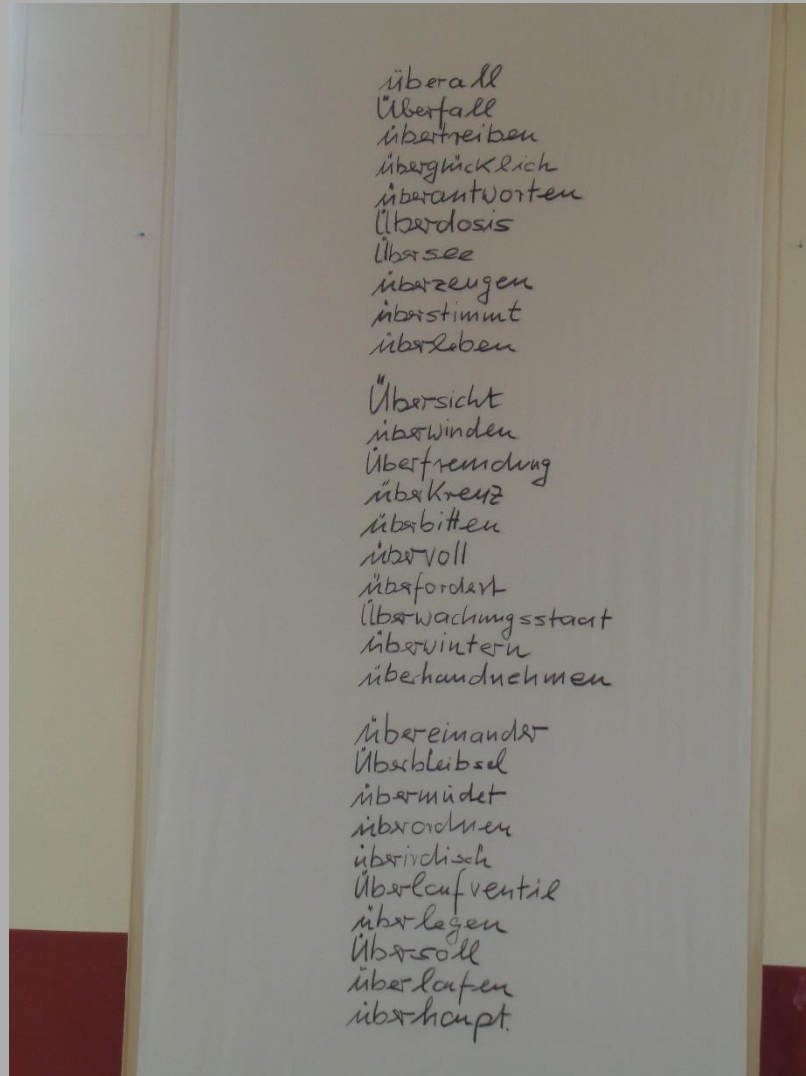 überall
Überfall
übertreiben
überglücklich
überantworten
Überdosis
Übersee
überzeugen
überstimmt
überleben
Übersicht
überwinden
Überfremdung
über Kreuz
überbitten
übervoll
überfordert
Überwachungsstaat
überwintern
überhandnehmen
übereinander
Überbleibsel
übermüdet
überordnen
überirdisch
Überlaufventil
überlegen
Übersoll
überlaufen
überhaupt.